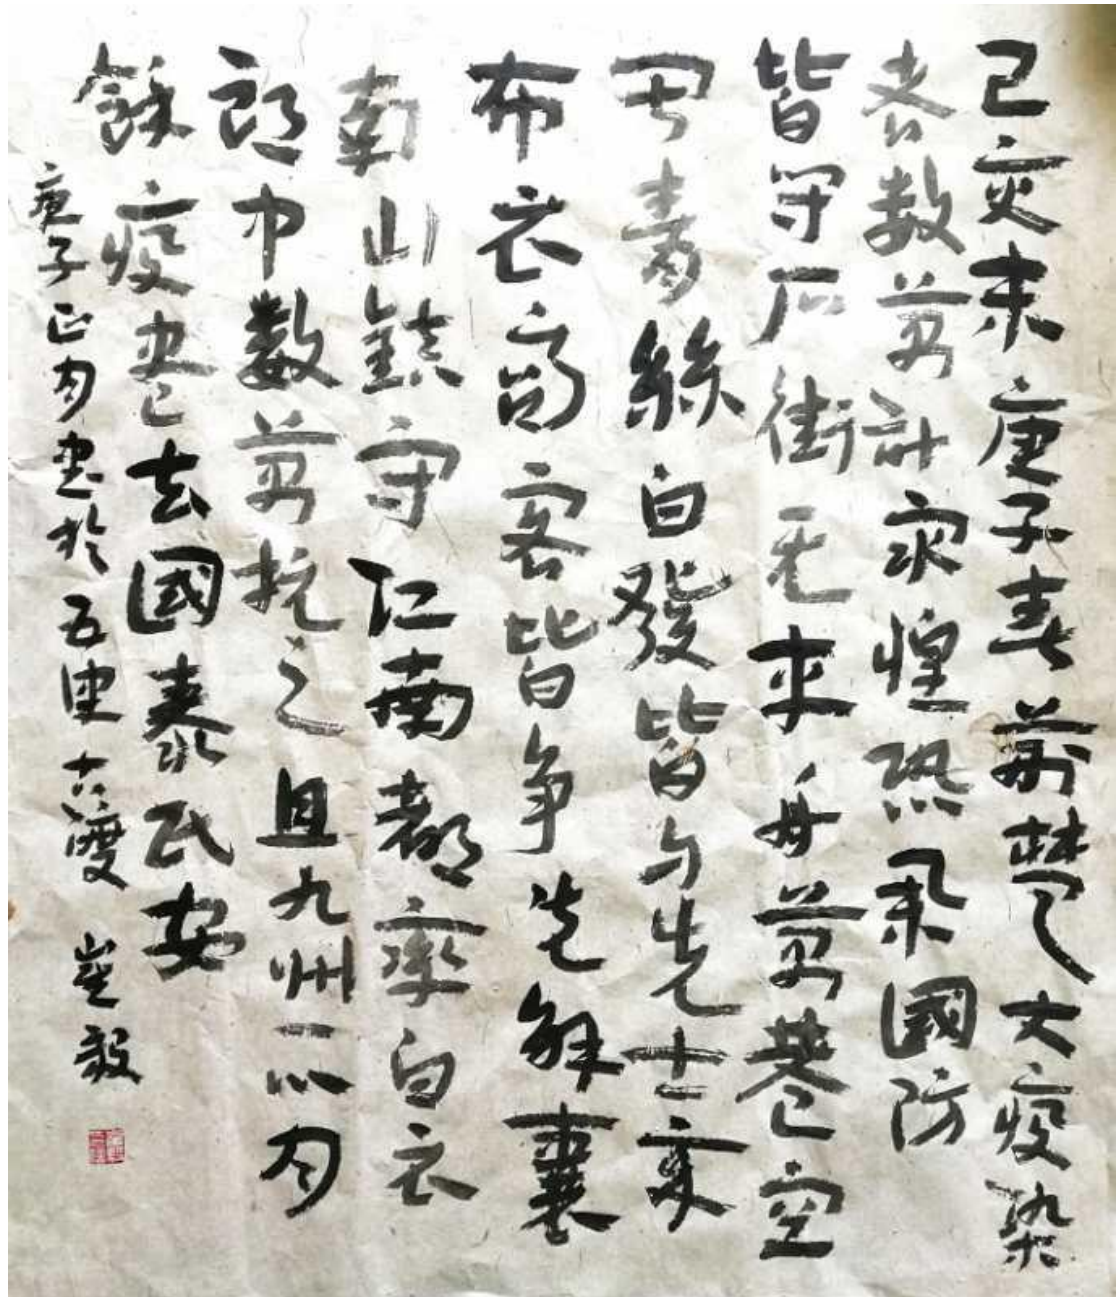 己亥末庚子春前楚大疫染
者数萬計眾惶恐舉國防
皆守足街無車舟萬巷空
男青絲白發皆勾先士卒
布衣商客皆争先解囊
南山鎮守仁南都率白衣
郎巾数萬抗之且九州一心月
餘疫盡去國泰民安
庚子正月書於